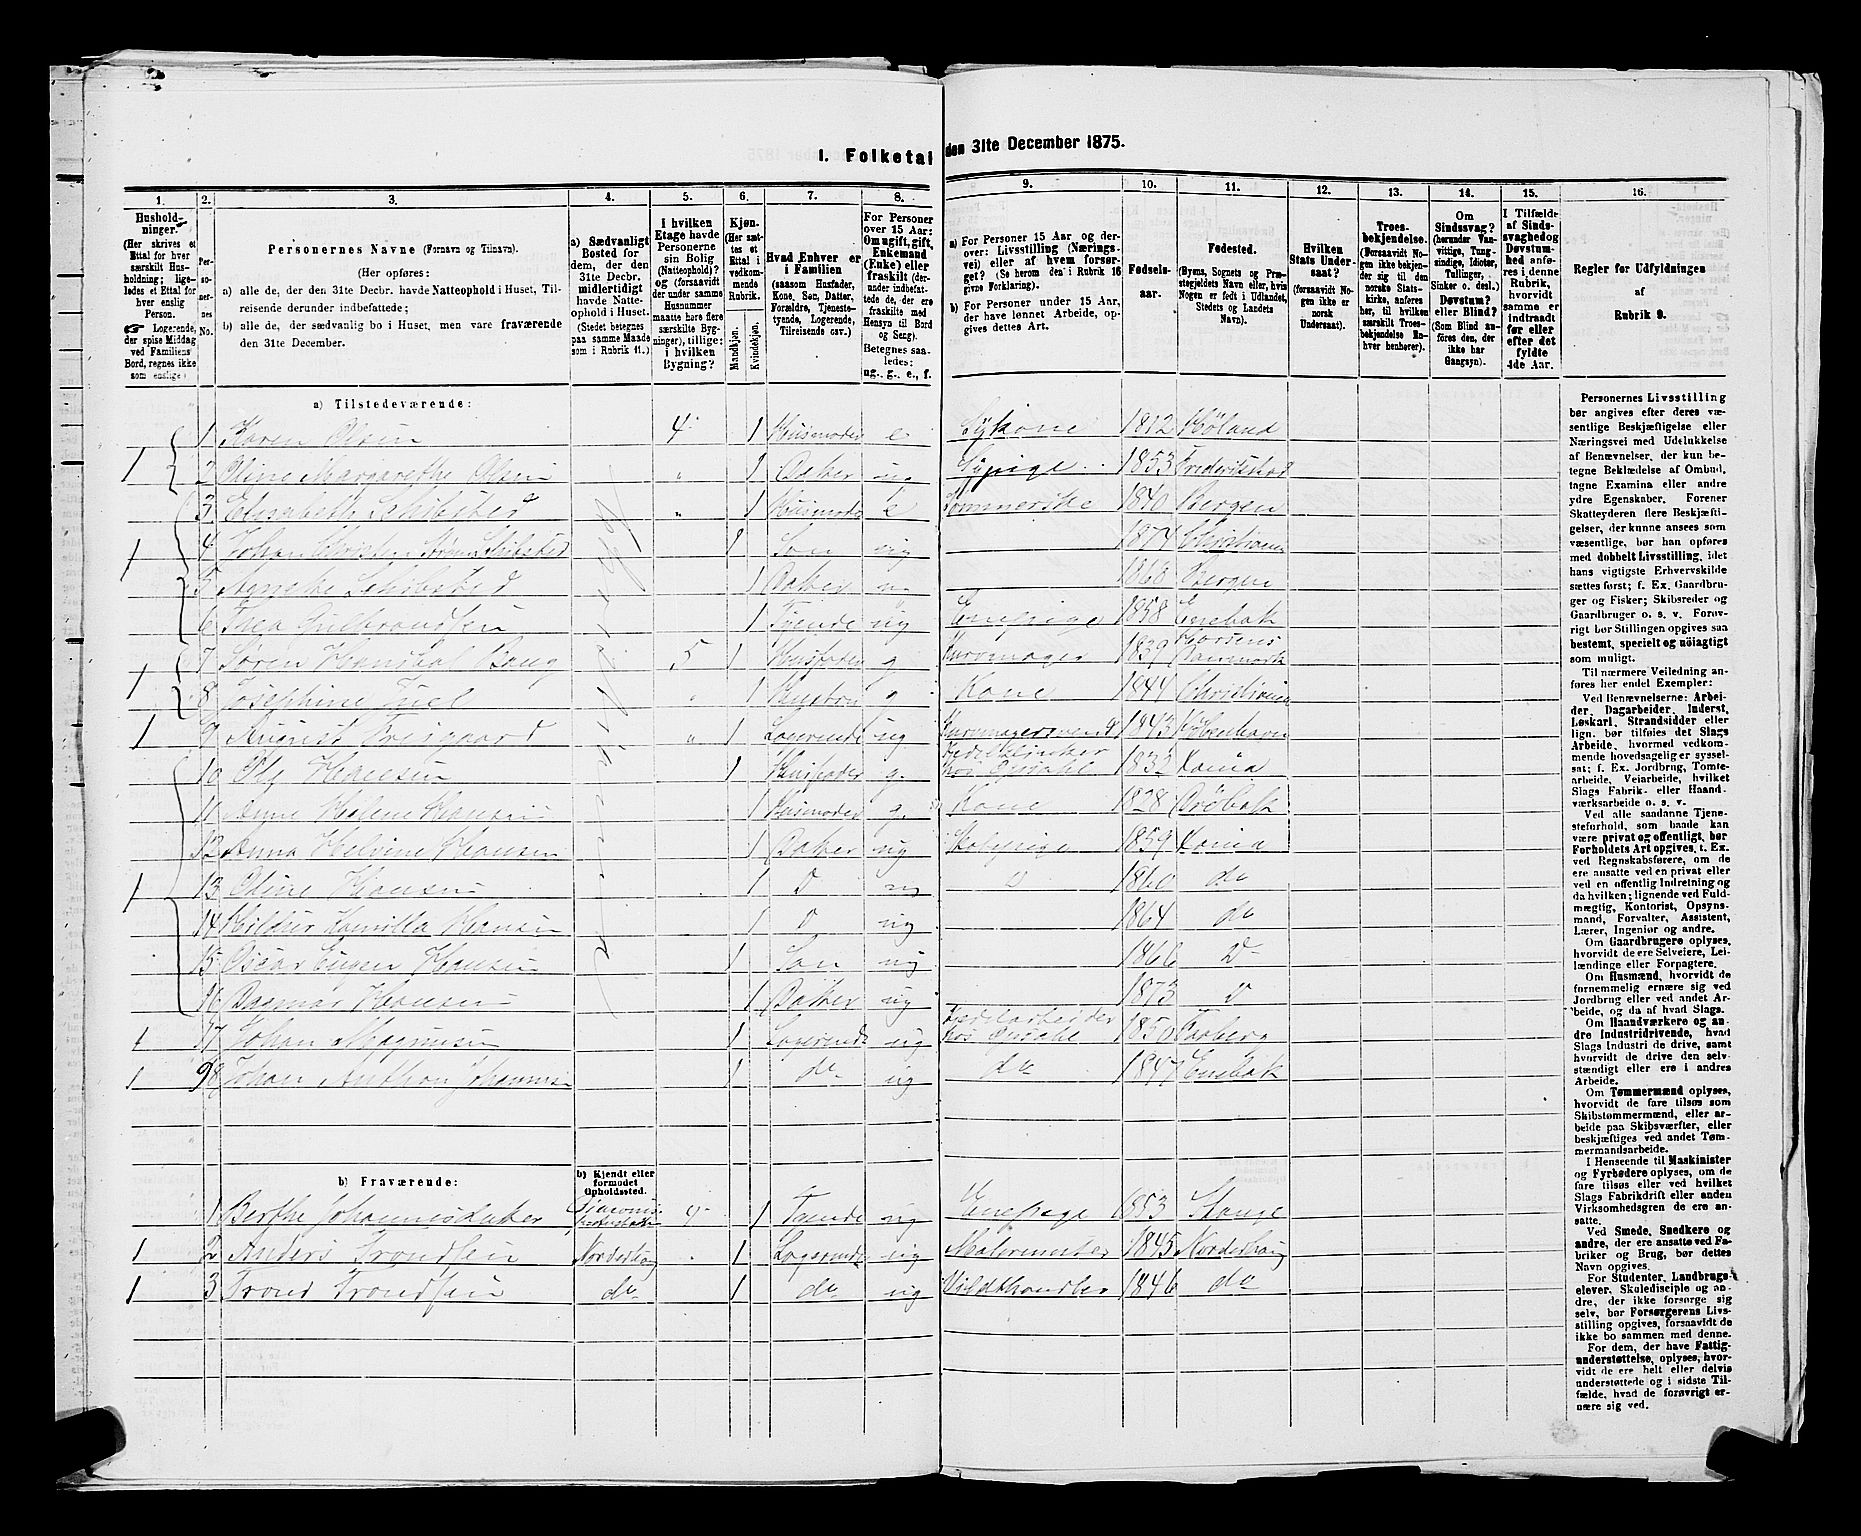 I. Folketal den 31te December 1875.
1. 2. 3. 4. 5. 6. 7. 8. 9. 10. 11. 12. 13. 14. 15. 16.
Hushold-
ninger.
(Her skrives et
Ettal for hver
særskilt Hus-
holdning; lige-
ledes et Ettal for
hver enslig
Person.
☞ Logerende,
der spise Middag
ved Familiens
Bord, regnes ikke
som enslige.)
Per-
so-
ner-
nes
No.
Personernes Navne (Fornavn og Tilnavn).
(Her opføres:
a) alle de, der den 31te Decbr. havde Natteophold i Huset, Til-
reisende derunder indbefattede;
b) alle de, der sædvanlig bo i Huset, men vare fraværende
den 31te December.
a) Sædvanligt
Bosted for
dem, der den
31te Decbr.
midlertidigt
havde Natte-
ophold i Huset.
(Stedet betegnes
paa samme Maade
som i Rubrik 11.)
I hvilken
Etage havde
Personerne
sin Bolig
(Natteophold)?
(og forsaavidt
der under samme
Husnummer
maatte høre flere
særskilte Byg-
ninger), tillige:
i hvilken
Bygning?
Kjøn.
(Her sæt-
tes et
Ettal i
vedkom-
mende
Rubrik.
Mandkjøn.
Kvindekjøn.
Hvad Enhver er
i Familien
(saasom Husfader,
Kone, Søn, Datter,
Forældre, Tjeneste-
tyende, Logerende,
Tilreisende osv.)
For Personer
over 15 Aar:
Om ugift, gift,
Enkemand
(Enke) eller
fraskilt (der-
under indbefat-
tede de, der ere
fraskilte med
Hensyn til Bord
og Seng).
Betegnes saa-
ledes:
ug., g., e., f.
a) For Personer 15 Aar og der-
over: Livsstilling (Nærings-
vei) eller af hvem forsør-
get? (Se herom den i Rubrik 16
givne Forklaring).
b) For Personer under 15 Aar,
der have lønnet Arbeide, op-
gives dettes Art.
Fødsels-
aar.
Fødested.
(Byens, Sognets og Præ-
stegjeldets Navn eller, hvis
Nogen er født i Udlandet,
Stedets og Landets
Navn).
Hvilken
Stats Under-
saat?
(forsaavidt No-
gen ikke er
norsk
Undersaat).
Troes-
bekjendelse.
(Forsaavidt No-
gen ikke bekjen-
der sig til den
norske Stats-
kirke, anføres
her, til hvilken
særskilt Troes-
bekjendelse En-
hver henhører).
Om
Sindssvag?
(herunder Van-
vittige, Tung-
sindige, Idioter,
Tullinger,
Sinker o. desl.)
Døvstum?
eller Blind?
(Som Blind an-
føres den, der
ikke har
Gangsyn).
I Tilfælde
af Sinds-
svaghed og
Døvstum-
hed anføres
i denne
Rubrik,
hvorvidt
samme er
indtraadt
før eller
efter det
fyldte
4de Aar.
Regler for Udfyldningen
af
Rubrik 9.
a) Tilstedeværende:
1 Karen Olsen 4 1 Husmoder e Sykone 1812 Høland
1 2 Oline Margarethe Olsen " 1 Datter ug Sypige 1853 Frederikstad
3 Elisabeth Schibsted " 1 Husmoder e 1840 Bergen
1 4 Johan Christian Schibsted 1 Søn ug 1874 Christiania
5 Agnethe Schibsted 1 Datter ug 1868 Bergen
6 Thea Gulbrandsen 1 Tjende ug 1858 Enebak
7 Søren Bang 5 1 Husfader g Kurvmager 1839 Horsens Danmark
1 8 Josephine Juel " 1 g Kone 1844 Christiania
1 9 August " 1 Logerende ug Kurvmagersvend 1843 Kjøbenhavn
10 Ole Hansen 1 Husfader g. 1832 Xania
11 Anne Helene Hansen 1 Husmoder g. Kone 1828 Drøbak
12 Anna Helvine Hansen 1 Datter ug 1859 Xania
1 13 Oline Hansen 1 D ug D 1860 do
14 Hilder Kamilla Hansen 1 D ug 1864 do
15 Oscar Eugen Hansen 1 Søn ug 1866 D
16 Dagmar Hansen 1 Datter ug 1873 D
1 17 Johan Magnusen 1 Logerende ug 1850
1 18 Johan Anthon Johannesen 1 do ug do 1847 Enebak
b) Fraværende:
b) Kjendt eller
formodet
Opholdssted.
1 Berthe Johannesdatter 4 1 Tjende ug Enepige 1853 Stange
1 2 Anders Trondsen Norderhoug 1 Logerende ug 1845 Norderhoug
1 3 Trond Trondsen do 1 do ug Vildthandler 1846 do
Personernes Livsstilling
bør angives efter deres væ-
sentlige Beskjæftigelse eller
Næringsvei med Udelukkelse
af Benævnelser, der kun be-
tegne Beklædelse af Ombud,
tagne Examina eller andre
ydre Egenskaber. Forener
Skatteyderen flere Beskjæfti-
gelser, der kunne ansees som
væsentlige, bør han opføres
med dobbelt Livsstilling, idet
hans vigtigste Erhvervskilde
sættes først; f. Ex. Gaardbru-
ger og Fisker; Skibsreder og
Gaardbruger o. s. v. Forøv-
rigt bør Stillingen opgives saa
bestemt, specielt og nöiagtigt
som muligt.
Til nærmere Veiledning an-
føres her endel Exempler:
Ved Benævnelserne: Arbei-
der, Dagarbeider, Inderst,
Løskarl, Strandsidder eller
lign. bør tilføies det Slags
Arbeide, hvormed vedkom-
mende hovedsagelig er syssel-
sat; f. Ex. Jordbrug, Tomte-
arbeide, Veiarbeide, hvilket
Slags Fabrik- eller Haand-
værksarbeide o. s. v.
Ved alle saadanne Tjene-
steforhold, som baade kan
være privat og offentligt, bør
Forholdets Art opgives, t. Ex.
ved Regnskabsførere, om de
ere ansatte ved en privat eller
ved en offentlig Indretning og
da hvilken; lignende ved Fuld-
mægtig, Kontorist, Opsyns-
mand, Forvalter, Assistent,
Lærer, Ingeniør og andre.
Om Gaardbrugere oplyses,
hvorvidt de ere Selveiere, Lei-
lændinge eller Forpagtere.
Om Husmænd, hvorvidt de
fornemmelig ernære sig ved
Jordbrug eller ved andet Ar-
beide, og da af hvad Slags.
Om Haandværkere og an-
dre Industridrivende, hvad
Slags Industri de drive, samt
hvorvidt de drive den selv-
stændigt eller ere i andres
Arbeide.
Om Tømmermænd oplyses,
hvorvidt de fare tilsøs som
Skibstømmermænd, eller ar-
beide paa Skibsværfter, eller
beskjæftiges ved andet Tøm-
mermandsarbeide.
I Henseende til Maskinister
og Fyrbødere oplyses, om de
fare tilsøs eller ved hvilket
Slags Fabrikdrift eller anden
Virksomhedsgren de ere an-
satte.
Ved Smede, Snedkere og
andre, der ere ansatte ved Fa-
briker og Brug, bør dettes
Navn opgives.
For Studenter, Landbrugs-
elever, Skoledisciple og an-
dre, der ikke forsørge sig
selv, bør Forsørgerens Livs-
stilling opgives, forsaavidt de
ikke bo sammen med denne.
For dem, der have Fattig-
understøttelse, oplyses, hvor-
vidt de ere helt eller delvis
understøttede og i sidste Til-
fælde, hvad de forøvrigt er-
nære sig ved.